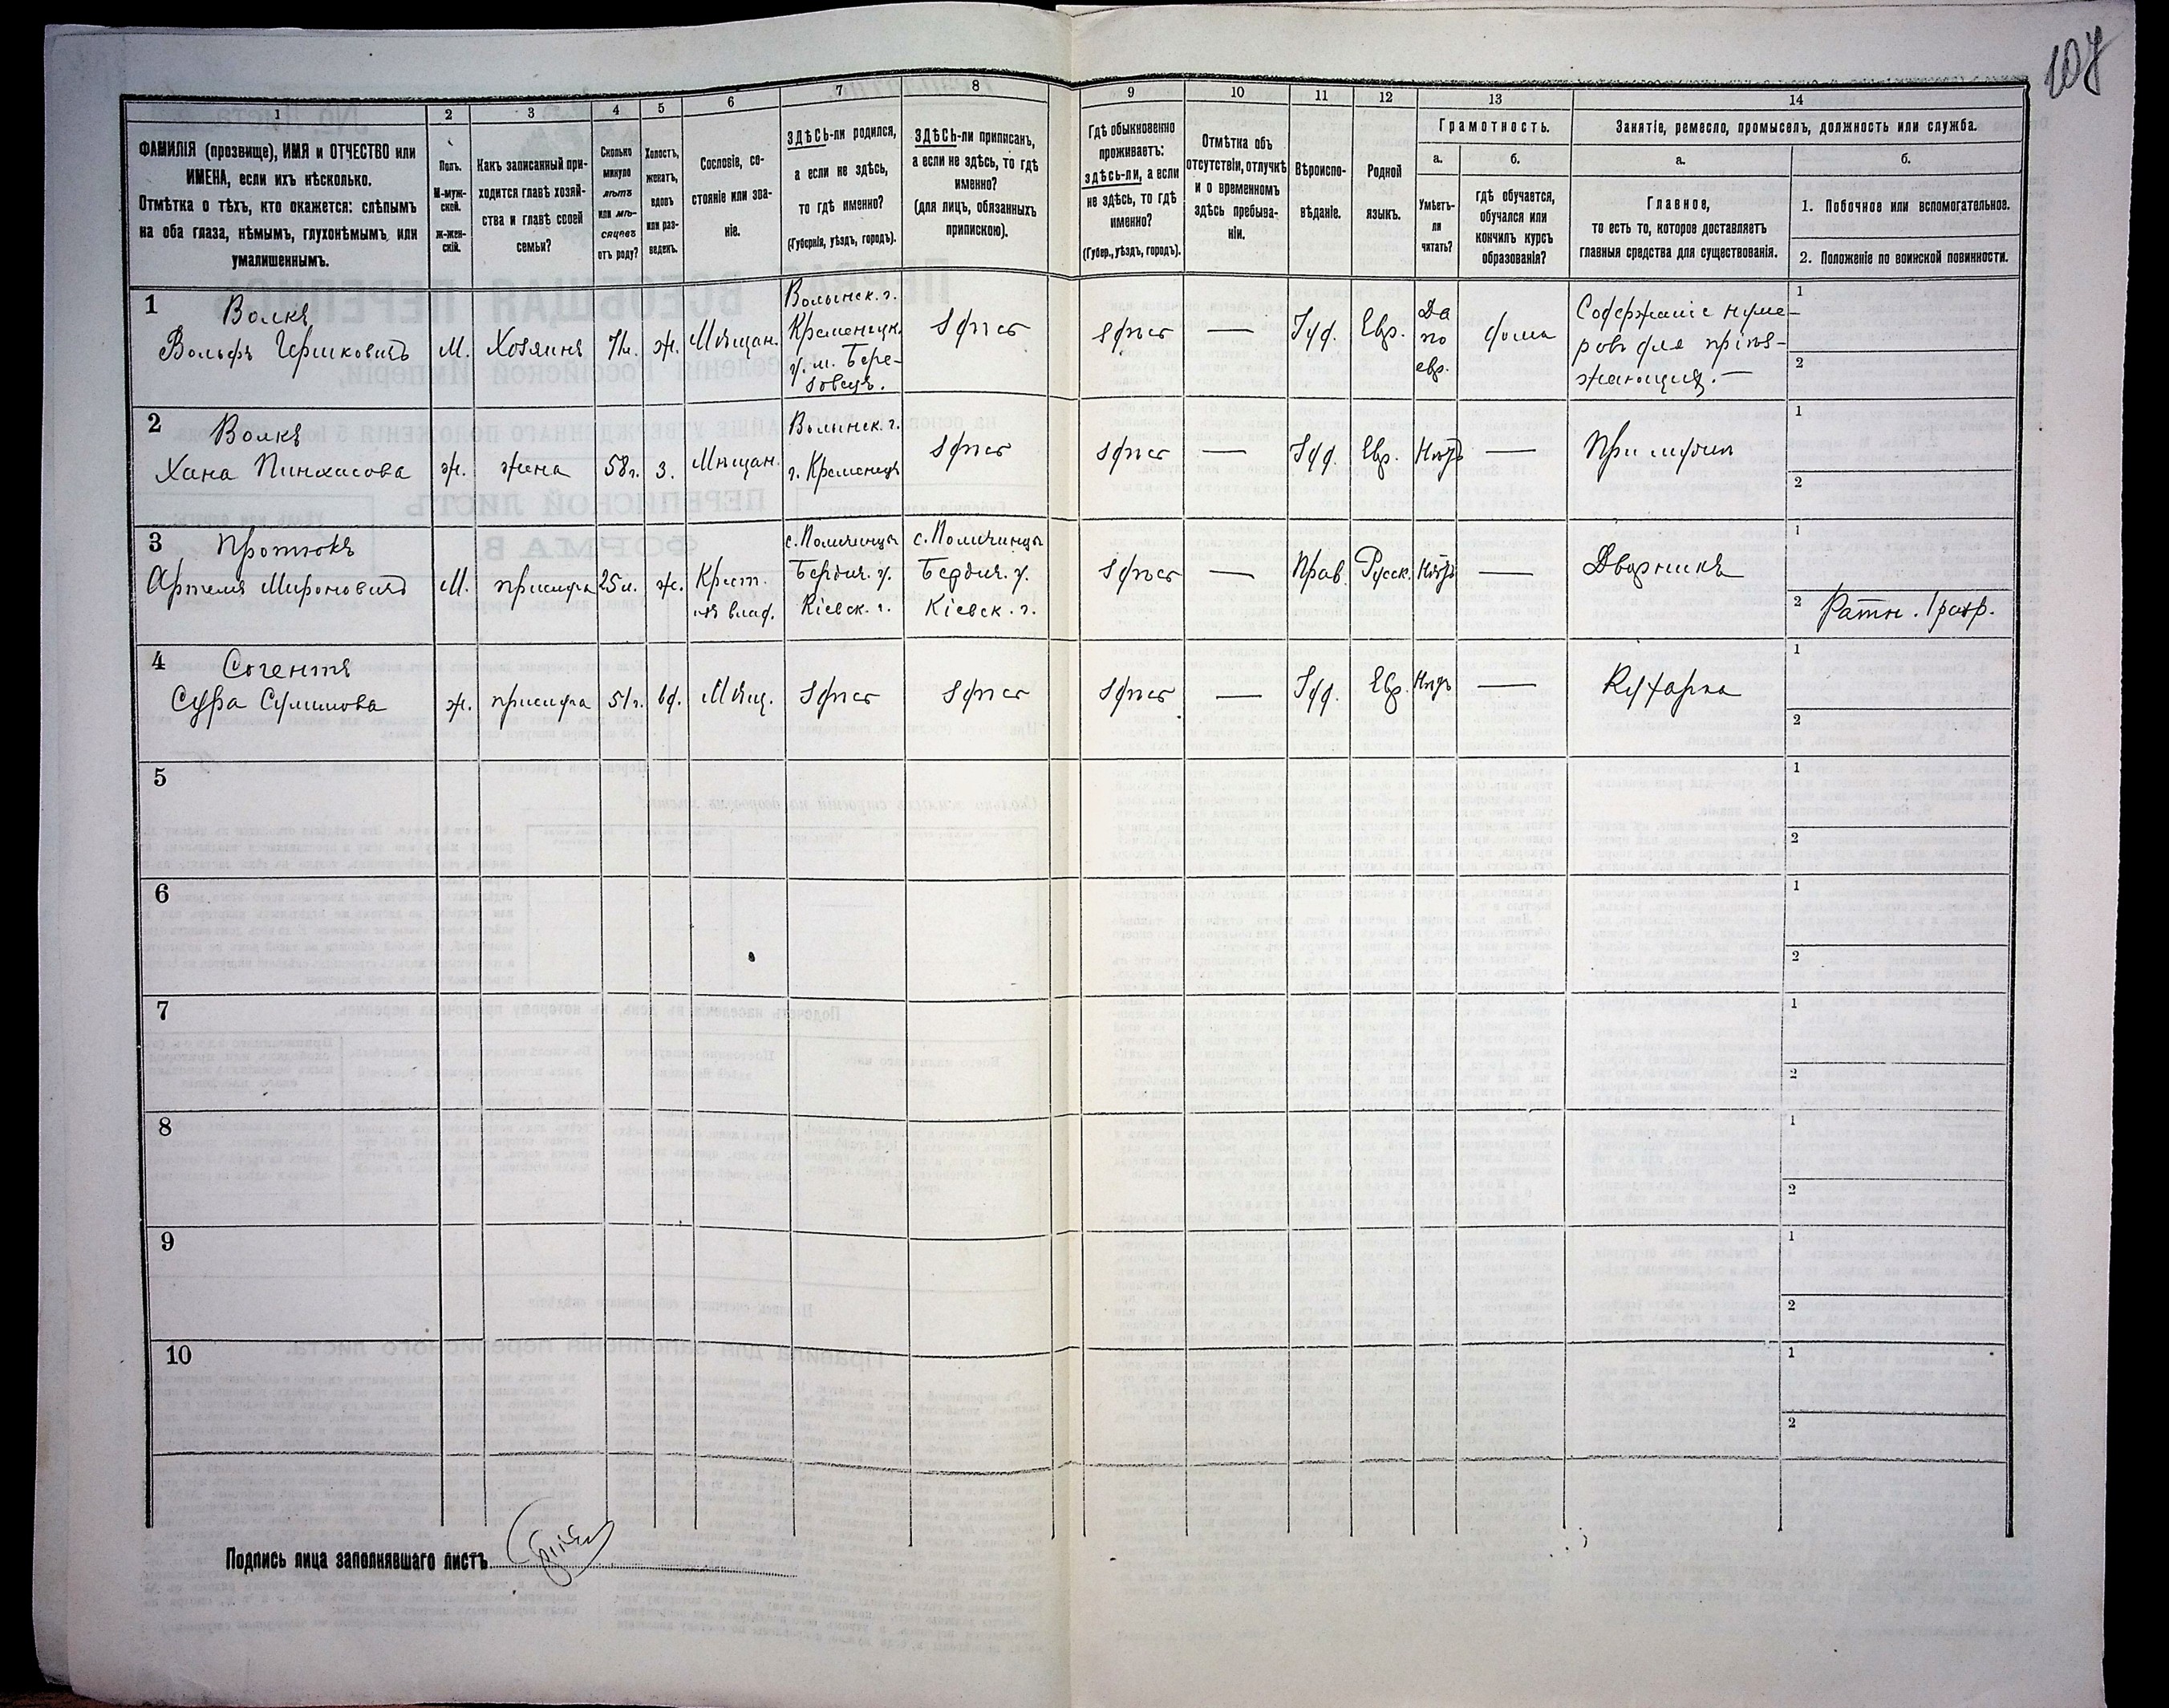 108
1
2
3
4
5
6
7
8
9
10
11
12
13
14
ФАМИЛІЯ (прозвище), ИМЯ и ОТЧЕСТВО или
ИМЕНА, если ихъ нѣсколько.
Отмѣтка о тѣхъ, кто окажется: слѣпымъ
на оба глаза, нѣмымъ, глухонѣмымъ или
умалишеннымъ.
Полъ.
М-муж-
ской.
Ж-жен-
скій.
Какъ записанный при-
ходится главѣ хозяй-
ства и главѣ своей
семьи?
Сколько
минуло
лѣтъ
или мѣ-
сяцевъ
отъ роду?
Холостъ,
женатъ,
вдовъ
или раз-
веденъ.
Сословіе, со-
стояніе или зва-
ніе.
ЗДѢСЬ-ли родился,
а если не здѣсь,
то гдѣ именно?
(Губернія, уѣздъ, городъ).
ЗДѢСЬ-ли приписанъ,
а если не здѣсь, то гдѣ
именно?
(для лицъ, обязанныхъ
припискою).
Гдѣ обыкновенно
проживаетъ:
здѣсь-ли, а если
не здѣсь, то гдѣ
именно?
(Губер., уѣздъ, городъ).
Отмѣтка объ
отсутствіи, отлучкѣ
и о временномъ
здѣсь пребыва-
ніи.
Вѣроиспо-
вѣданіе.
Родной
языкъ.
Грамотность.
а.
Умѣетъ-
ли
читать?
б.
гдѣ обучается,
обучался или
кончилъ курсъ
образованія?
Занятіе, ремесло, промыселъ, должность или служба.
а.
Главное,
то есть то, которое доставляетъ
главныя средства для существованія.
б.
1. Побочное или вспомогательное.
2. Положеніе по воинской повинности.
1
Волкъ
Вольфъ Гершковичъ
М.
Хозяинъ
71л.
ж.
Мѣщан.
Волынск. г.
Кременецк.
у. м. Бере-
зовецъ.
здѣсь
здѣсь
—
Іуд.
Евр.
Да
по
евр.
дома
Содержаніе нуме-
ровъ для пріѣз-
жающихъ.—
1
2
2
Волкъ
Хана Пинхасова
ж.
жена
58г.
з.
Мѣщан.
Волынск. г.
г. Кременецъ
здѣсь
здѣсь
—
Іуд.
Евр.
Нѣтъ
—
При мужѣ
1
2
3
Протюкъ
Артемъ Мироновичъ
М.
прислуга
25л.
ж.
Крест.
изъ влад.
с. Поличинцы
Бердич. у.
Кіевск. г.
с. Поличинцы
Бердич. у.
Кіевск. г.
здѣсь
—
Прав.
Русск.
Нѣтъ
—
Дворникъ
1
2 Ратн. 1 разр.
4
Согентъ
Сура Сулимова
ж.
прислуга
51г.
вд.
Мѣщ.
здѣсь
здѣсь
здѣсь
—
Іуд.
Евр.
Нѣтъ
—
Кухарка
1
2
5
1
2
6
1
2
7
1
2
8
1
2
9
1
2
10
1
2
Подпись лица заполнявшаго листъ